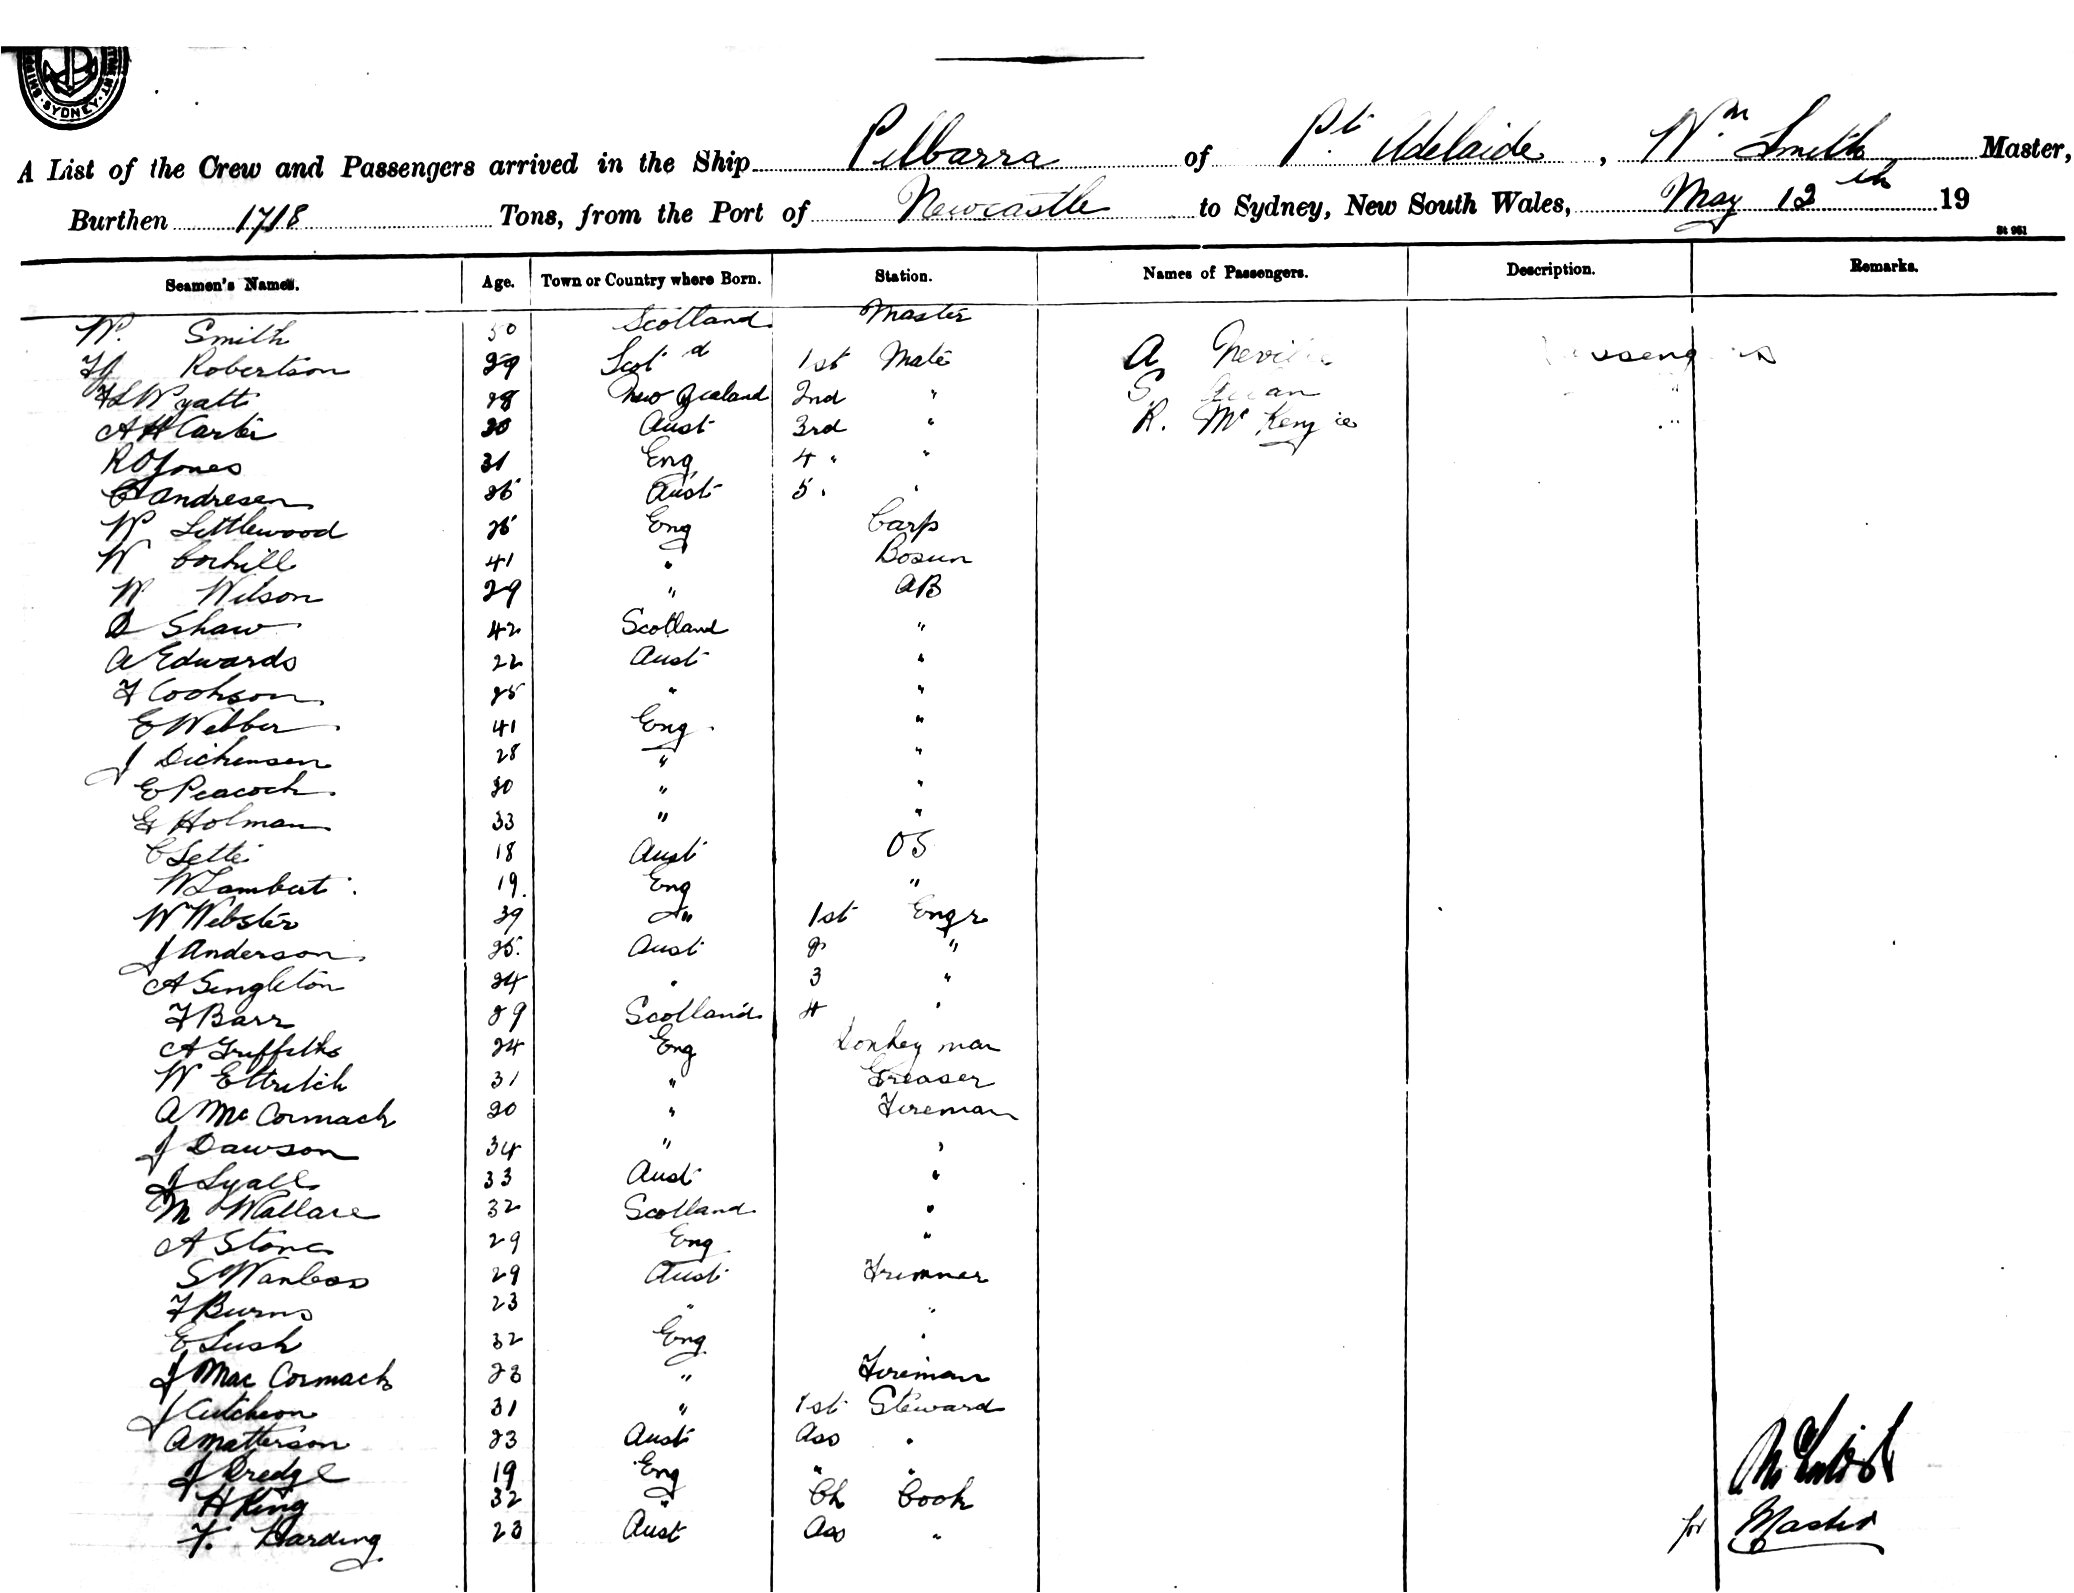 SYDNEY
A List of the Crew and Passengers arrived in the Ship Pilbarra of Pt. Adelaide, Wm Smith Master,
Burthen 1718 Tons, from the Port of Newcastle to Sydney, New South Wales, May 12th 19
St 951
Seamen's Names. Age. Town or Country where Born. Station. Names of Passengers. Description. Remarks.
W. Smith 50 Scotland Master
Robertson 29 Scotd 1st Mate A Neville Passengers
Wyatt 28 New Zealand 2nd " S "
A H Carter 30 Aust 3rd " R. McKenzie "
R O Jones 31 Eng 4 " "
Andresen 26 Aust 5 " "
W Littlewood 25 Eng Carp
W Corhill 41 " Bosun
W Wilson 29 " AB
D Shaw 42 Scotland "
A Edwards 22 Aust "
F Cookson 25 " "
E Webber 41 Eng "
J Dickenson 28 " "
E Peacock 30 " "
G Holman 33 " "
C Lette 18 Aust OS
W Lambert 19 Eng "
Wm Webster 39 " 1st Engr
J Anderson 25 Aust 2 "
A Singleton 24 " 3 "
F Barr 29 Scotland 4 "
A Griffiths 24 Eng Donkey man
W Ettritch 31 " Greaser
A McCormack 30 " Fireman
J Dawson 34 " "
J Lyall 33 Aust "
M Wallace 32 Scotland "
A Stone 29 Eng "
S Wanless 29 Aust Trimmer
F Burns 23 " "
E Lush 32 Eng "
J MacCormack 23 " Fireman
J Cutcheon 31 " 1st Steward
A Matterson 23 Aust Ass "
J Dredge 19 Eng " "
H King 32 " Ch Cook
F. Harding 23 Aust Ass "
for Master